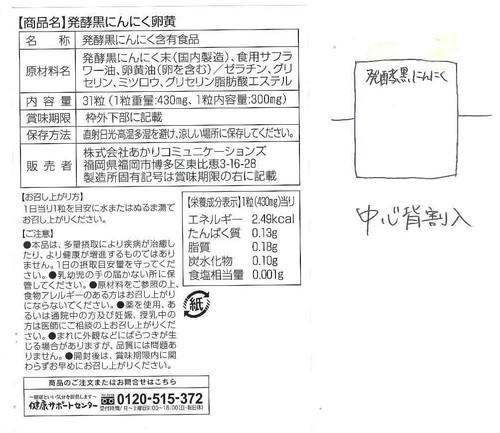 【商品名】発酵黒にんにく卵黄
名 称 発酵黒にんにく含有食品
原材料名 発酵黒にんにく末（国内製造）、食用サフラ
ワー油、卵黄油（卵を含む）／ゼラチン、グリ
セリン、ミツロウ、グリセリン脂肪酸エステル
内 容 量 31粒（1粒重量:430mg、1粒内容量:300mg）
賞味期限 枠外下部に記載
保存方法 直射日光・高温多湿を避け、涼しい場所に保存してください。
販 売 者 株式会社あかりコミュニケーションズ
福岡県福岡市博多区東比恵3-16-28
製造所固有記号は賞味期限の右に記載
【お召し上がり方】
1日当り1粒を目安に水またはぬるま湯で
お召し上がりください。
【ご注意】
●本品は、多量摂取により疾病が治癒し
たり、より健康が増進するものではあり
ません。1日の摂取目安量を守ってくださ
い。●乳幼児の手の届かない所に保
管してください。●原材料をご参照の上、
食物アレルギーのある方はお召し上が
りにならないでください。●薬を使用、あ
るいは通院中の方及び妊娠、授乳中の
方は医師にご相談の上お召し上がりくだ
さい。●まれに外観などにばらつきが生
じる場合がありますが、品質には問題あ
りません。●開封後は、賞味期限内に関
わらずお早めにお召し上がりください。
【栄養成分表示】1粒(430mg)当り
エネルギー 2.49kcal
たんぱく質 0.13g
脂質 0.18g
炭水化物 0.10g
食塩相当量 0.001g
紙
商品のご注文またはお問合せはこちら
〜健康といい気分を提供します〜
健康サポートセンター
0120-515-372
受付時間/月〜土曜日9:00〜18:00(日・祝日休)
発酵黒にんにく
中心背割入